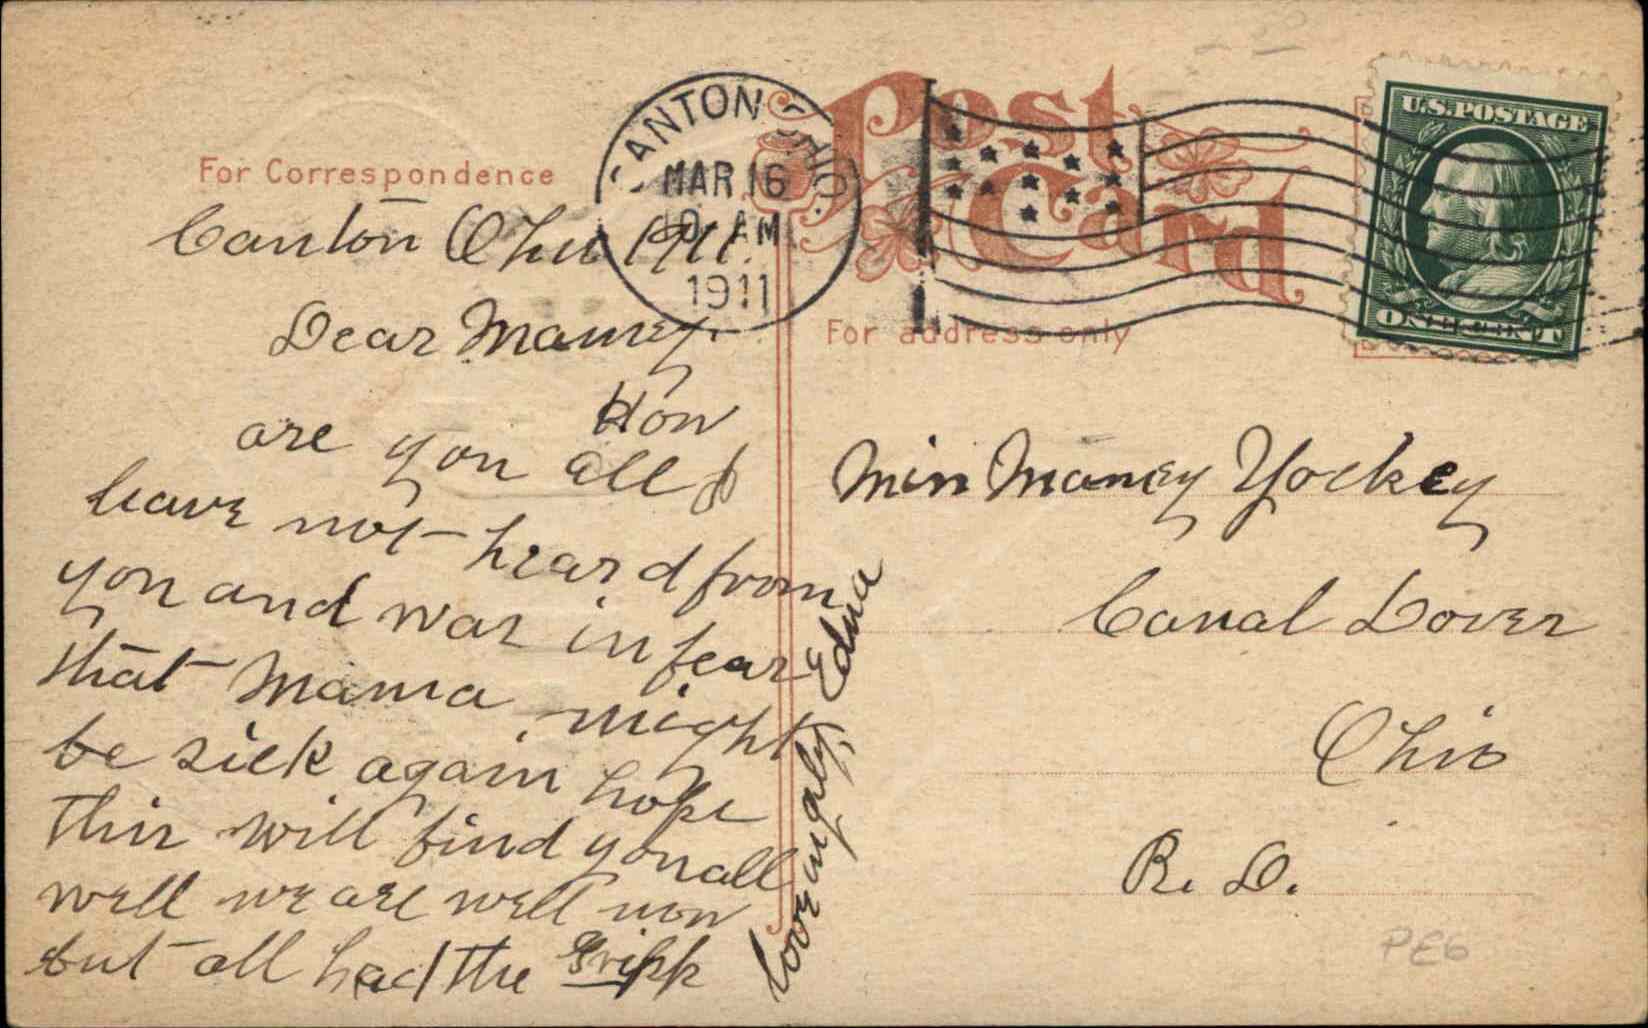 Post Card
For Correspondence
For address only
CANTON OHIO.
MAR 16
10 AM
1911
U.S.POSTAGE
ONE CENT
Canton Ohio 1911.
Dear Mamey.
How
are you all I
have not heard from
you and was in fear
that Mama might
be sick again hope
this will find you all
well we are well now
but all had the Gripp
lovingly, Edna
Miss Mamey Yockey
Canal Dover
Ohio
R. D.
PE6